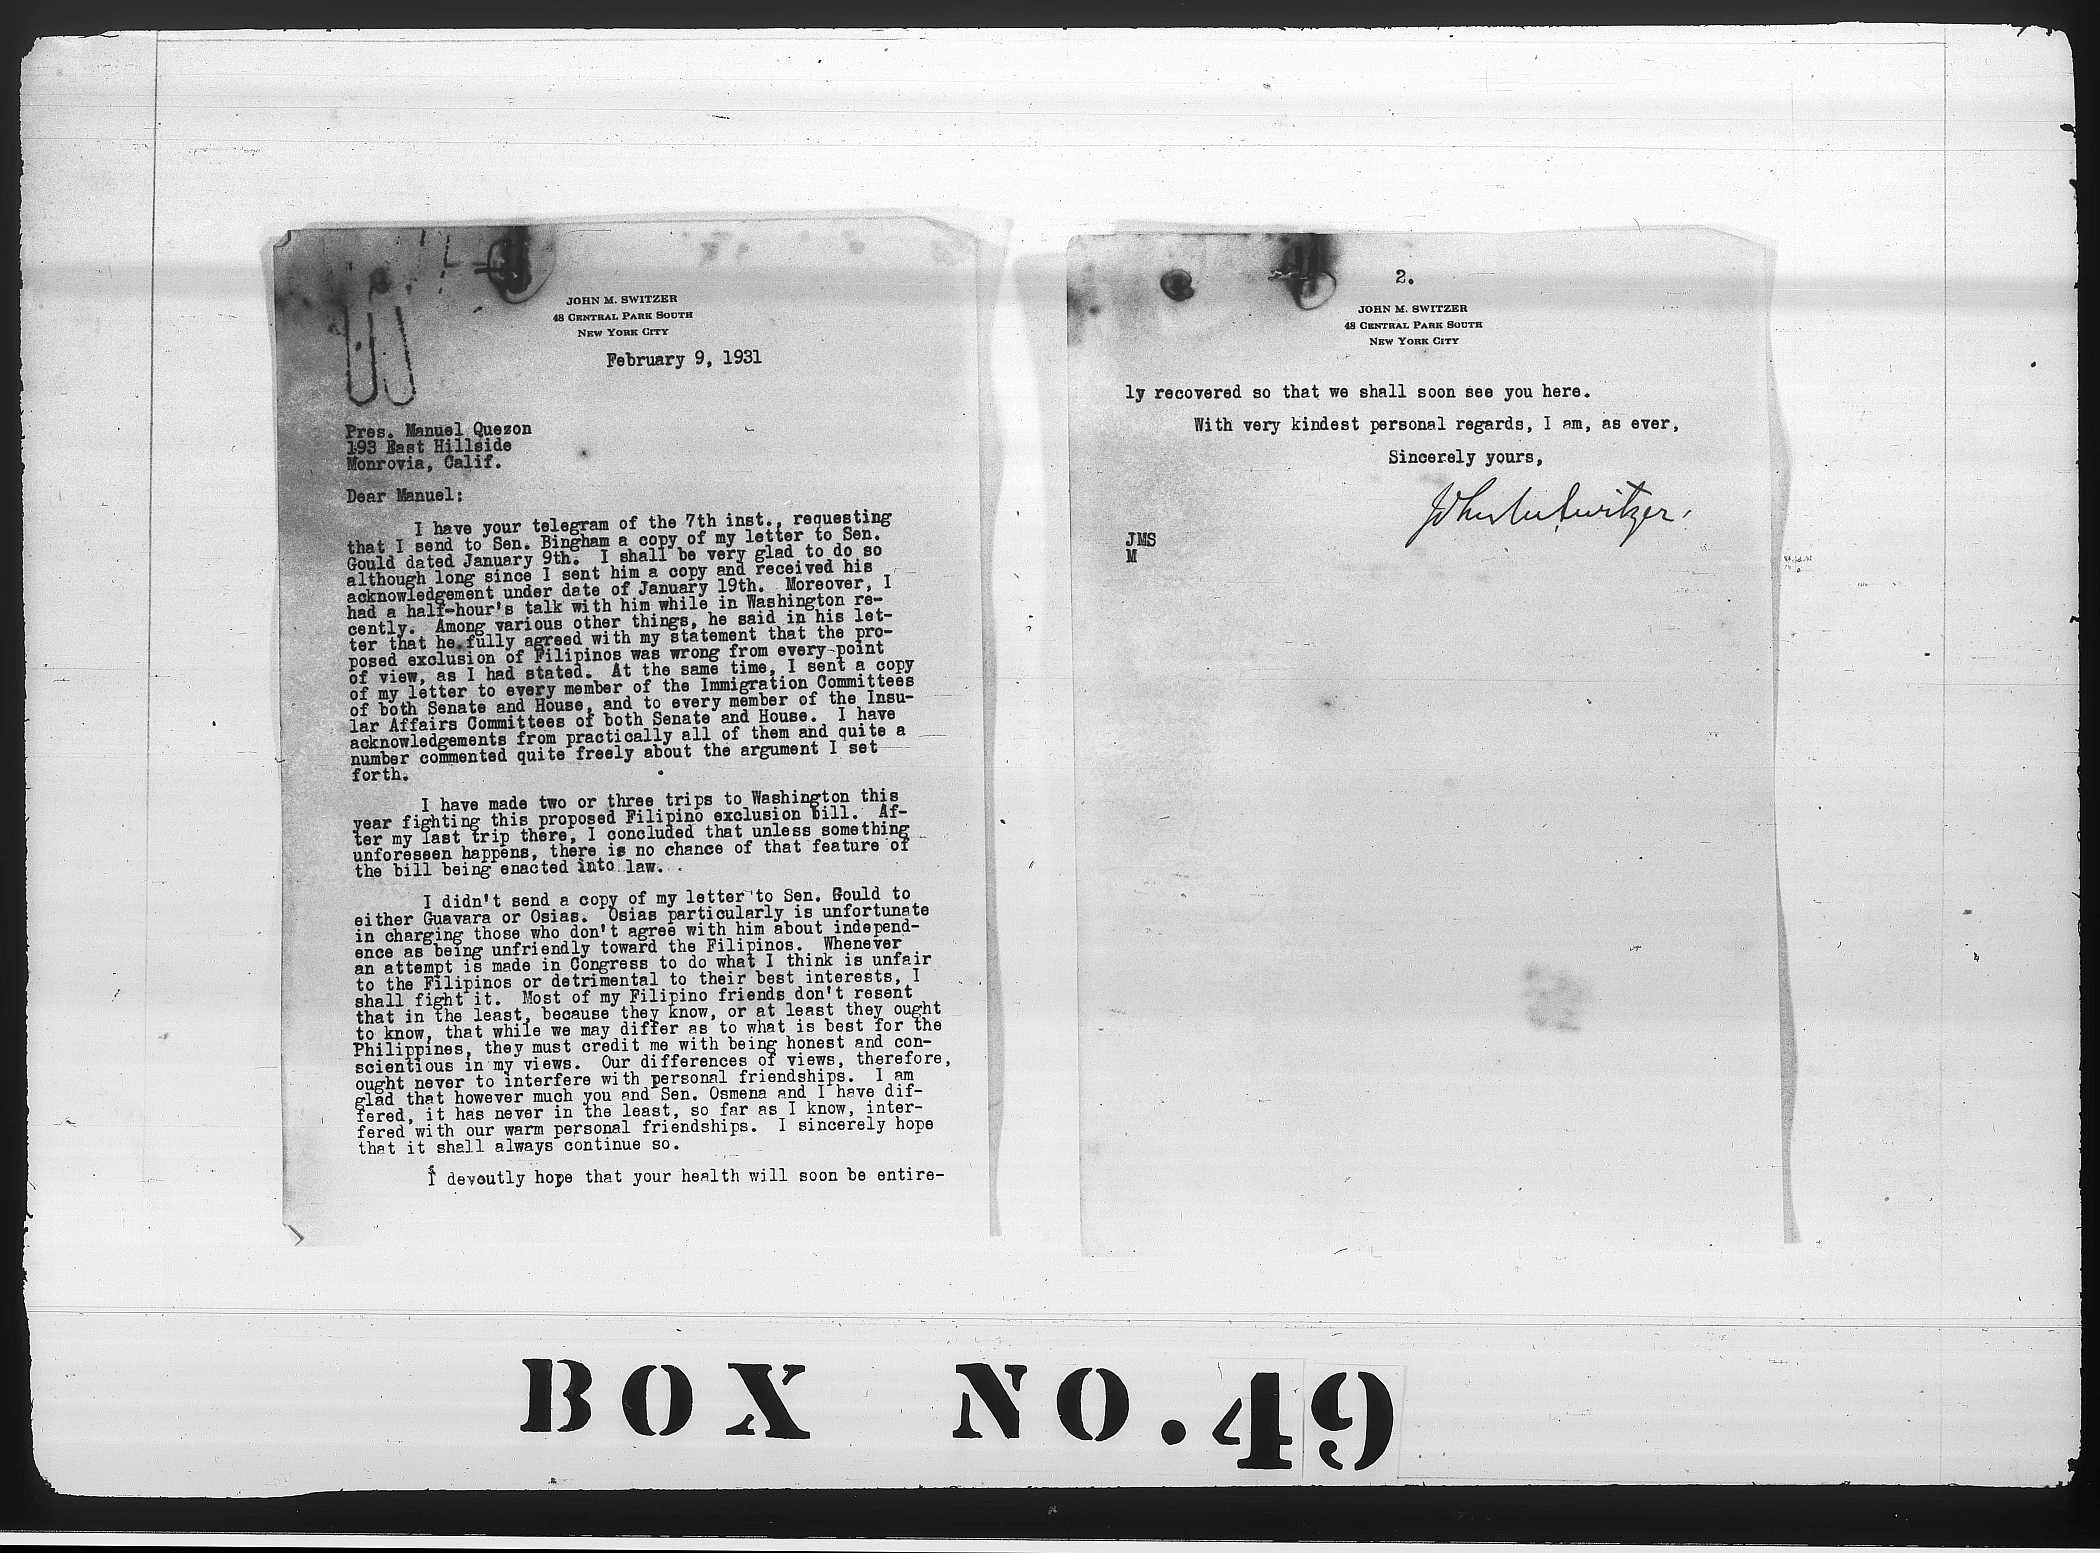 JOHN M. SWITZER
48 CENTRAL PARK SOUTH
NEW YORK CITY
February 9, 1931
Pres. Manuel Quezon
193 East Hillside
Monrovia, Calif.
Dear Manuel:
I have your telegram of the 7th inst., requesting
that I send to Sen. Bingham a copy of my letter to Sen.
Gould dated January 9th. I shall be very glad to do so
although long since I sent him a copy and received his
acknowledgement under date of January 19th. Moreover, I
had a half-hour's talk with him while in Washington re-
cently. Among various other things, he said in his let-
ter that he fully agreed with my statement that the pro-
posed exclusion of Filipinos was wrong from every point
of view, as I had stated. At the same time, I sent a copy
of my letter to every member of the Immigration Committees
of both Senate and House, and to every member of the Insu-
lar Affairs Committees of both Senate and House. I have
acknowledgements from practically all of them and quite a
number commented quite freely about the argument I set
forth.
I have made two or three trips to Washington this
year fighting this proposed Filipino exclusion bill. Af-
ter my last trip there, I concluded that unless something
unforeseen happens, there is no chance of that feature of
the bill being enacted into law.
I didn't send a copy of my letter to Sen. Gould to
either Guavara or Osias. Osias particularly is unfortunate
in charging those who don't agree with him about independ-
ence as being unfriendly toward the Filipinos. Whenever
an attempt is made in Congress to do what I think is unfair
to the Filipinos or detrimental to their best interests, I
shall fight it. Most of my Filipino friends don't resent
that in the least, because they know, or at least they ought
to know, that while we may differ as to what is best for the
Philippines, they must credit me with being honest and con-
scientious in my views. Our differences of views, therefore,
ought never to interfere with personal friendships. I am
glad that however much you and Sen. Osmena and I have dif-
fered, it has never in the least, so far as I know, inter-
fered with our warm personal friendships. I sincerely hope
that it shall always continue so.
I devoutly hope that your health will soon be entire-
2.
JOHN M. SWITZER
48 CENTRAL PARK SOUTH
NEW YORK CITY
ly recovered so that we shall soon see you here.
With very kindest personal regards, I am, as ever,
Sincerely yours,
John M. Switzer.
JMS
M
BOX NO. 49